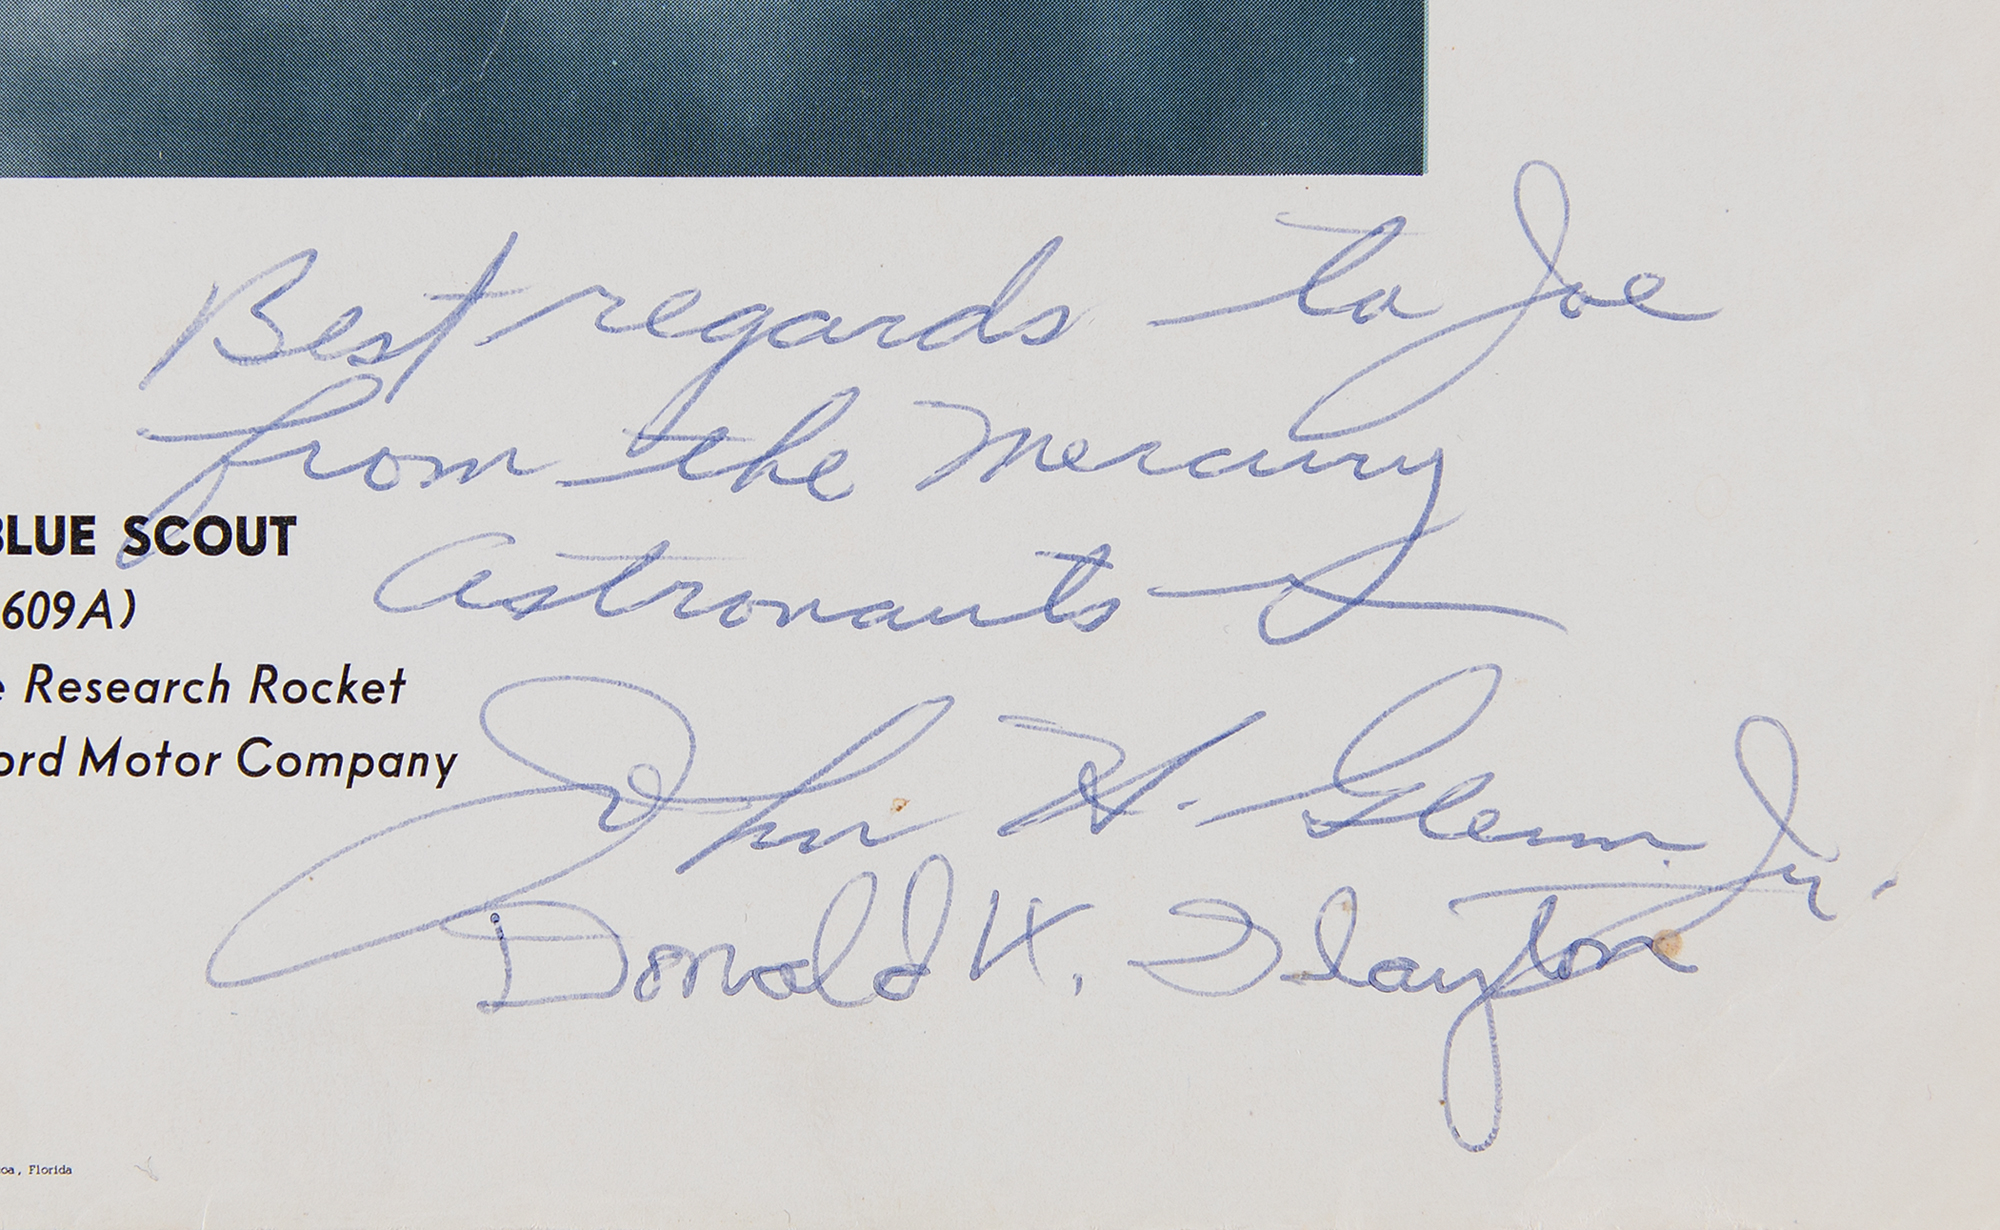 Best regards to Joe
from the Mercury
Astronauts
BLUE SCOUT
609A)
e Research Rocket
ord Motor Company
John H. Glenn Jr.
Donald K. Slayton
oa, Florida